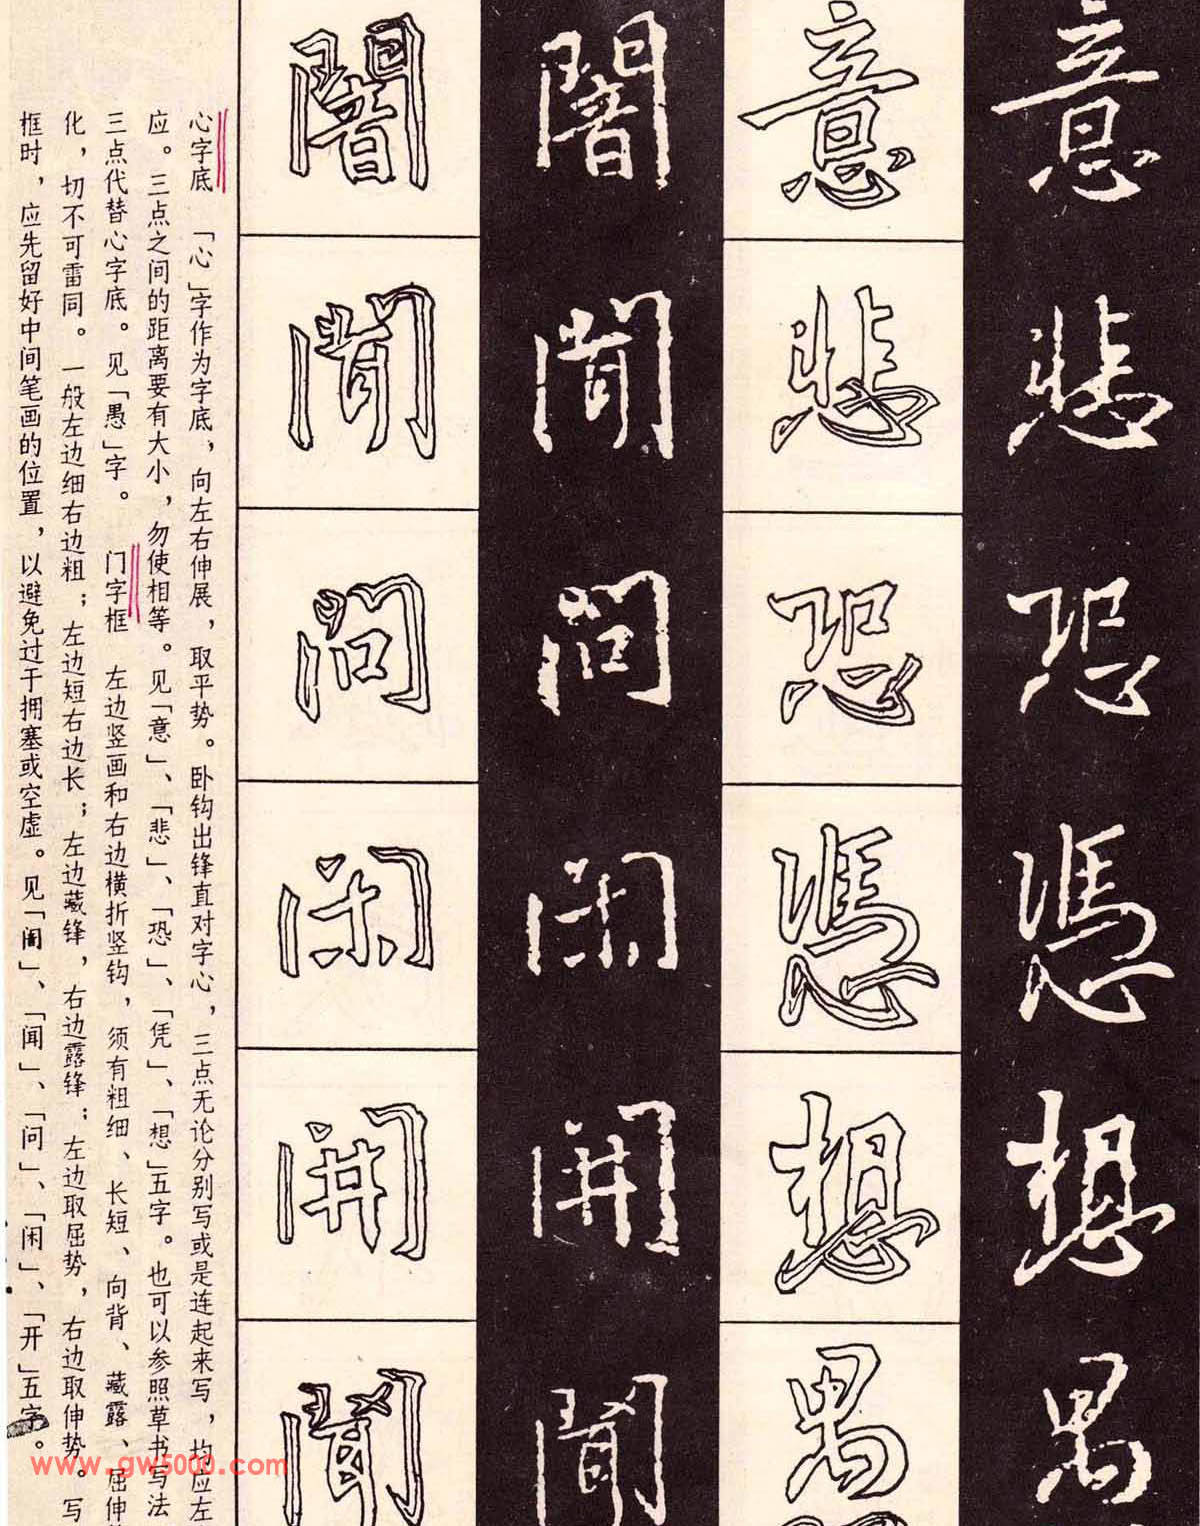 意
悲
恐
憑
想
愚
意
悲
恐
憑
想
愚
闇
聞
問
閑
開
聞
闇
聞
問
閑
開
聞
心字底 「心」字作为字底，向左右伸展，取平势。卧钩出锋直对字心，三点无论分别写或是连起来写，均应左
应。三点之间的距离要有大小，勿使相等。见「意」、「悲」、「恐」、「凭」、「想」五字。也可以参照草书写法
三点代替心字底。见「愚」字。 门字框 左边竖画和右边横折竖钩，须有粗细、长短、向背、藏露、屈伸
化，切不可雷同。一般左边细右边粗；左边短右边长；左边藏锋，右边露锋；左边取屈势，右边取伸势。写
框时，应先留好中间笔画的位置，以避免过于拥塞或空虚。见「闇」、「闻」、「问」、「闲」、「开」五字。
www.gw5000.com